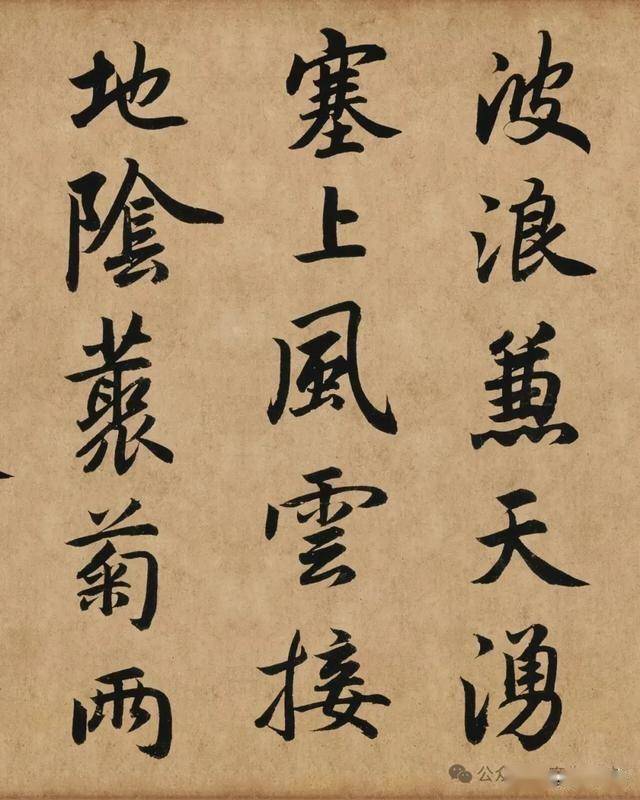 波浪蒹天湧
塞上風雲接
地陰藂菊兩
公众